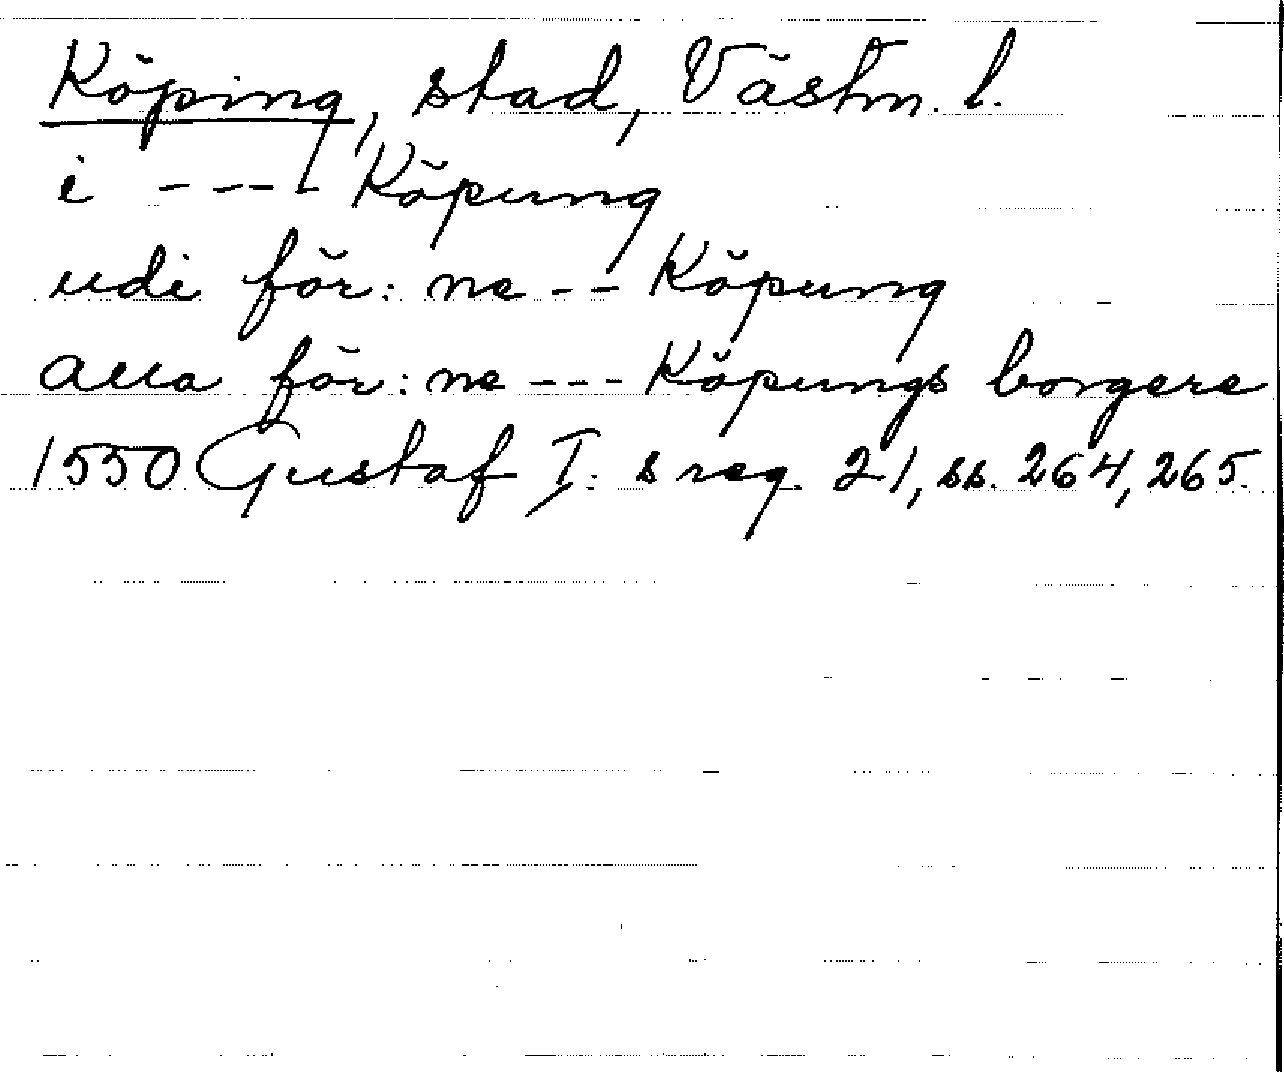 Köping, stad, Västm. l.
i ---- Köpung
udi för: ne -- Köpung
alla för: ne --- Köpungs borgere
1550 Gustaf I: s reg. 21, ss. 264, 265.